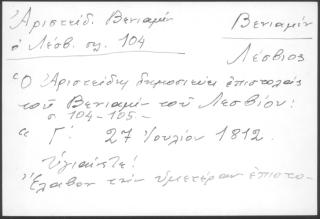 Ἀριστείδ. Βενιαμίν
ὁ Λέσβ. σελ. 104
Βενιαμίν
Λέσβιος
"Ὁ Ἀριστείδης δημοσιεύει ἐπιστολὰς
τοῦ Βενιαμὶν τοῦ Λεσβίου:
σ. 104-105.-
"Γ΄. 27 Ἰουλίου 1812.
Ὑγιαίνετε!
Ἔλαβον τὴν ὑμετέραν ἐπιστο-